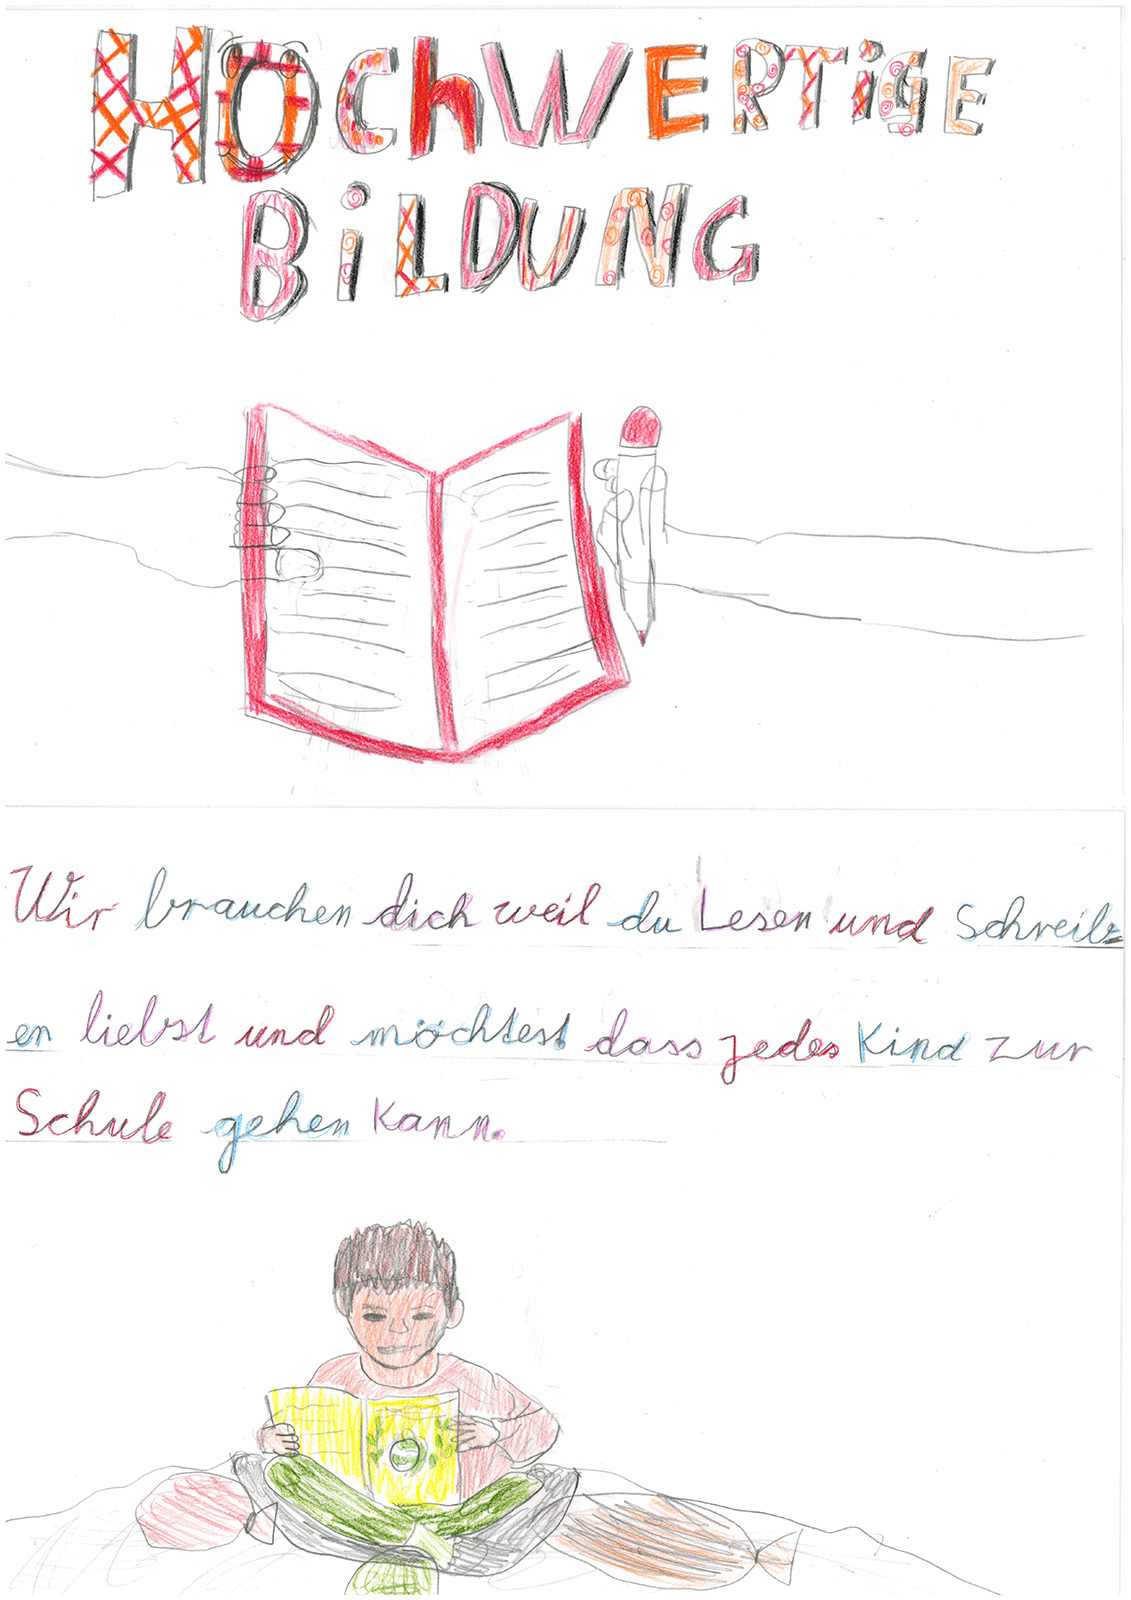 HOchWERTiGE
BiLDUNG
Wir brauchen dich weil du Lesen und Schreib=
en liebst und möchtest dass jedes Kind zur
Schule gehen Kann.